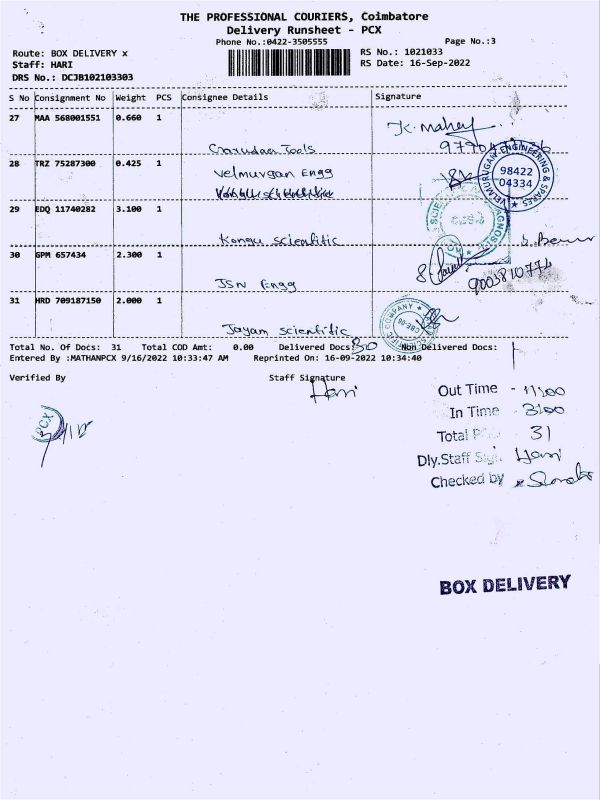 THE PROFESSIONAL COURIERS, Coimbatore
Delivery Runsheet - PCX
Phone No.:0422-3505555
Page No.:3
Route: BOX DELIVERY x
RS No.: 1021033
Staff: HARI
RS Date: 16-Sep-2022
DRS No.: DCJB102103303
S No Consignment No Weight PCS Consignee Details Signature
27 MAA 568001551 0.660 1
K. Mahesh
Garudaa Tools
28 TRZ 75287300 0.425 1
Velmurgan Engg
VELMURUGAN ENGINEERING & SPARES
98422
04334
29 EDQ 11740282 3.100 1
Kongu scientific
30 GPM 657434 2.300 1
JSN Engg
31 HRD 709187150 2.000 1
Jayam scientific
Total No. Of Docs: 31 Total COD Amt: 0.00 Delivered Docs: 30 Non Delivered Docs: 1
Entered By :MATHANPCX 9/16/2022 10:33:47 AM Reprinted On: 16-09-2022 10:34:40
Verified By Staff Signature
Hari
PCX
Out Time - 11:00
In Time - 3:00
Total - 31
Dly.Staff Sign. Hari
Checked by
BOX DELIVERY